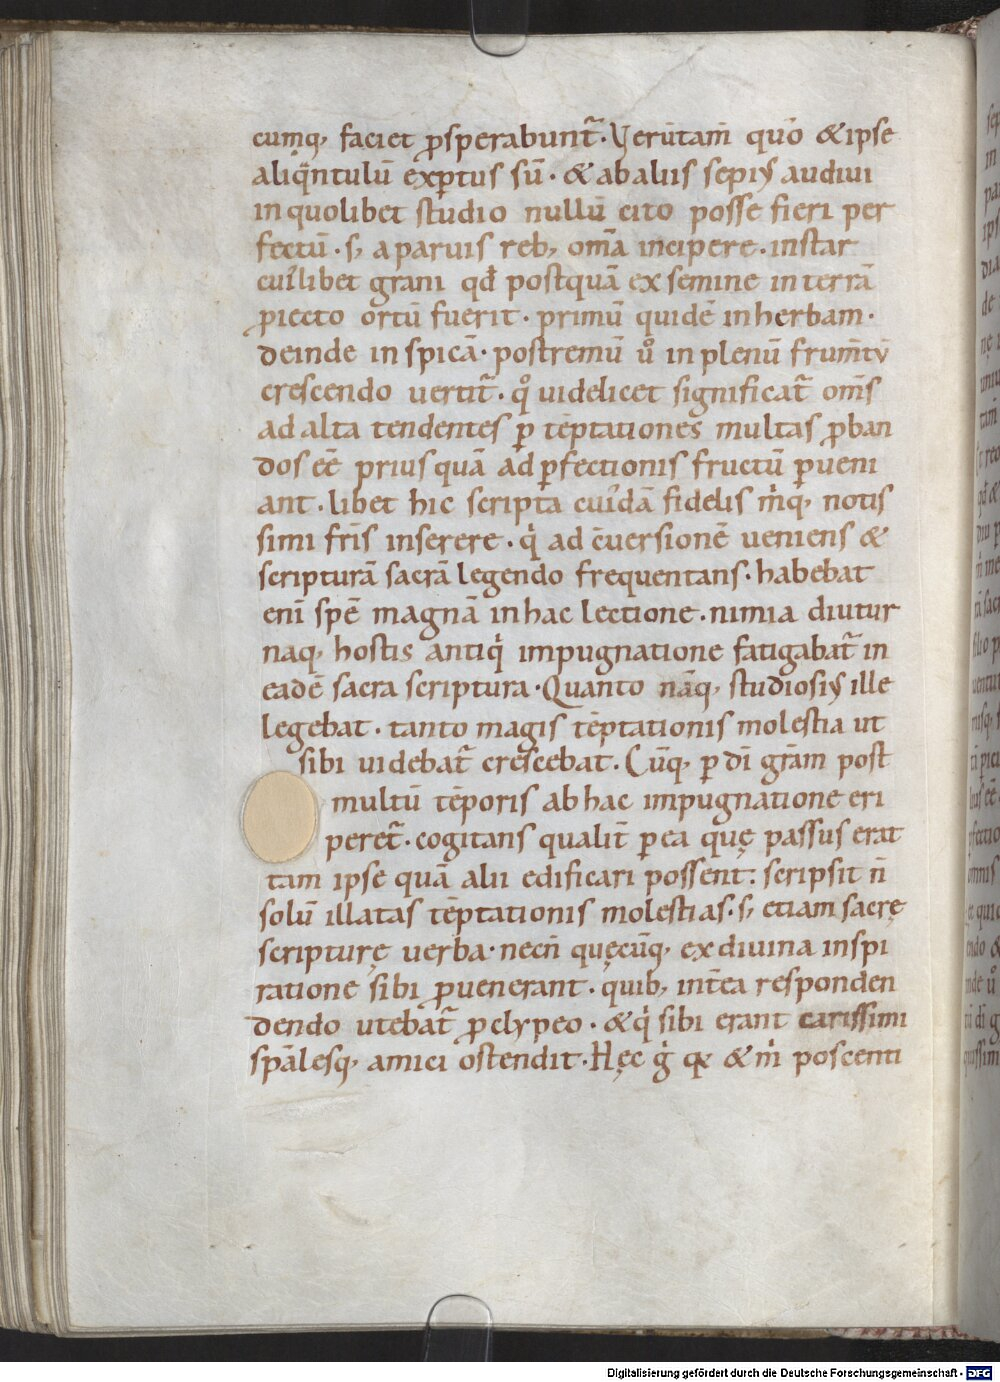 cumq, faciet ꝓsperabunt᷑. Verūtam̄ quō & ipse
aliqͣntulū exꝑtus sū. & ab aliis sepiꝰ audiui
in quolibet studio nullū cito posse fieri per
fectū. s, a paruis reb, om̄a incipere. instar
cuiꝰlibet grani qđ postquā ex semine in terrā
ꝓiecto ortū fuerit. primū quidē in herbam.
deinde in spicā. postremū uͦ in plenū frum̄tū
crescendo uertit᷑. qͦ uidelicet significat᷑ om̄s
ad alta tendentes ꝑ tēptationes multas ꝓban
dos eē prius quā ad ꝑfectionis fructū ꝑueni
ant. libet hic scripta cuiꝰdā fidelis mͥq, notis
simi fr̄is inserere. qͥ ad c̄uersionē ueniens &
scripturā sacrā legendo frequentans. habebat
enī spē magnā in hac lectione. nimia diutur
naq, hostis antiqͥ impugnatione fatigabat᷑ in
eadē sacra scriptura. Quanto nāq, studiosiꝰ ille
legebat. tanto magis tēptationis molestia ut
sibi uidebat᷑ crescebat. Cūq, ꝑ dī gr̄am post
multū tēporis ab hac impugnatione eri
peret᷑. cogitans qualit̄ ꝑ ea quę passus erat
tam ipse quā alii edificari possent: scripsit n̄
solū illatas tēptationis molestias. s, etiam sacrę
scripturę uerba. necn̄ quęcūq, ex diuina inspi
ratione sibi ꝓuenerant. quib, int̄ea responden
dendo utebat᷑ ꝓ clypeo. & qͥ sibi erant carissimi
sp̄alesq, amici ostendit. Hęc gͥ qꝫ & mͥ poscenti
Digitalisierung gefördert durch die Deutsche Forschungsgemeinschaft - DFG